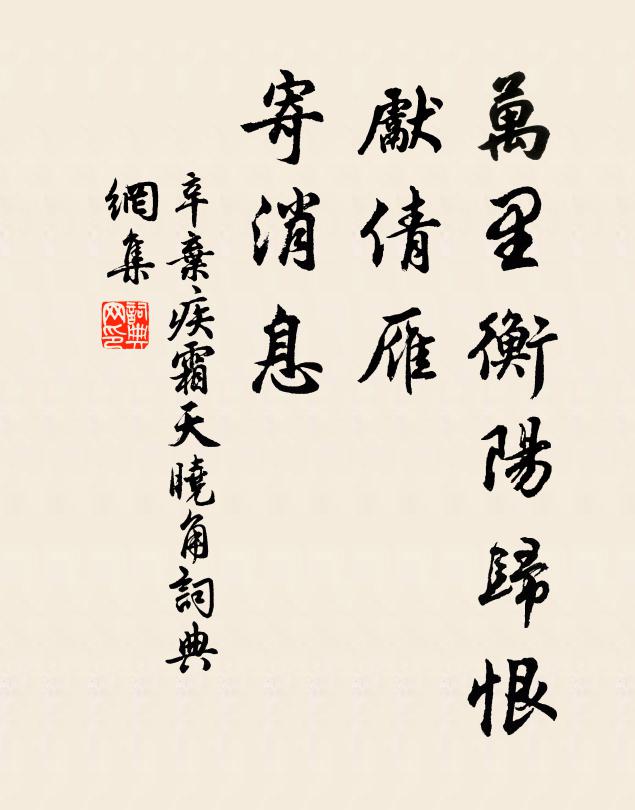 萬里衡陽歸恨
獻倩雁
寄消息
辛棄疾霜天曉角詞典
網集
詞典
网印